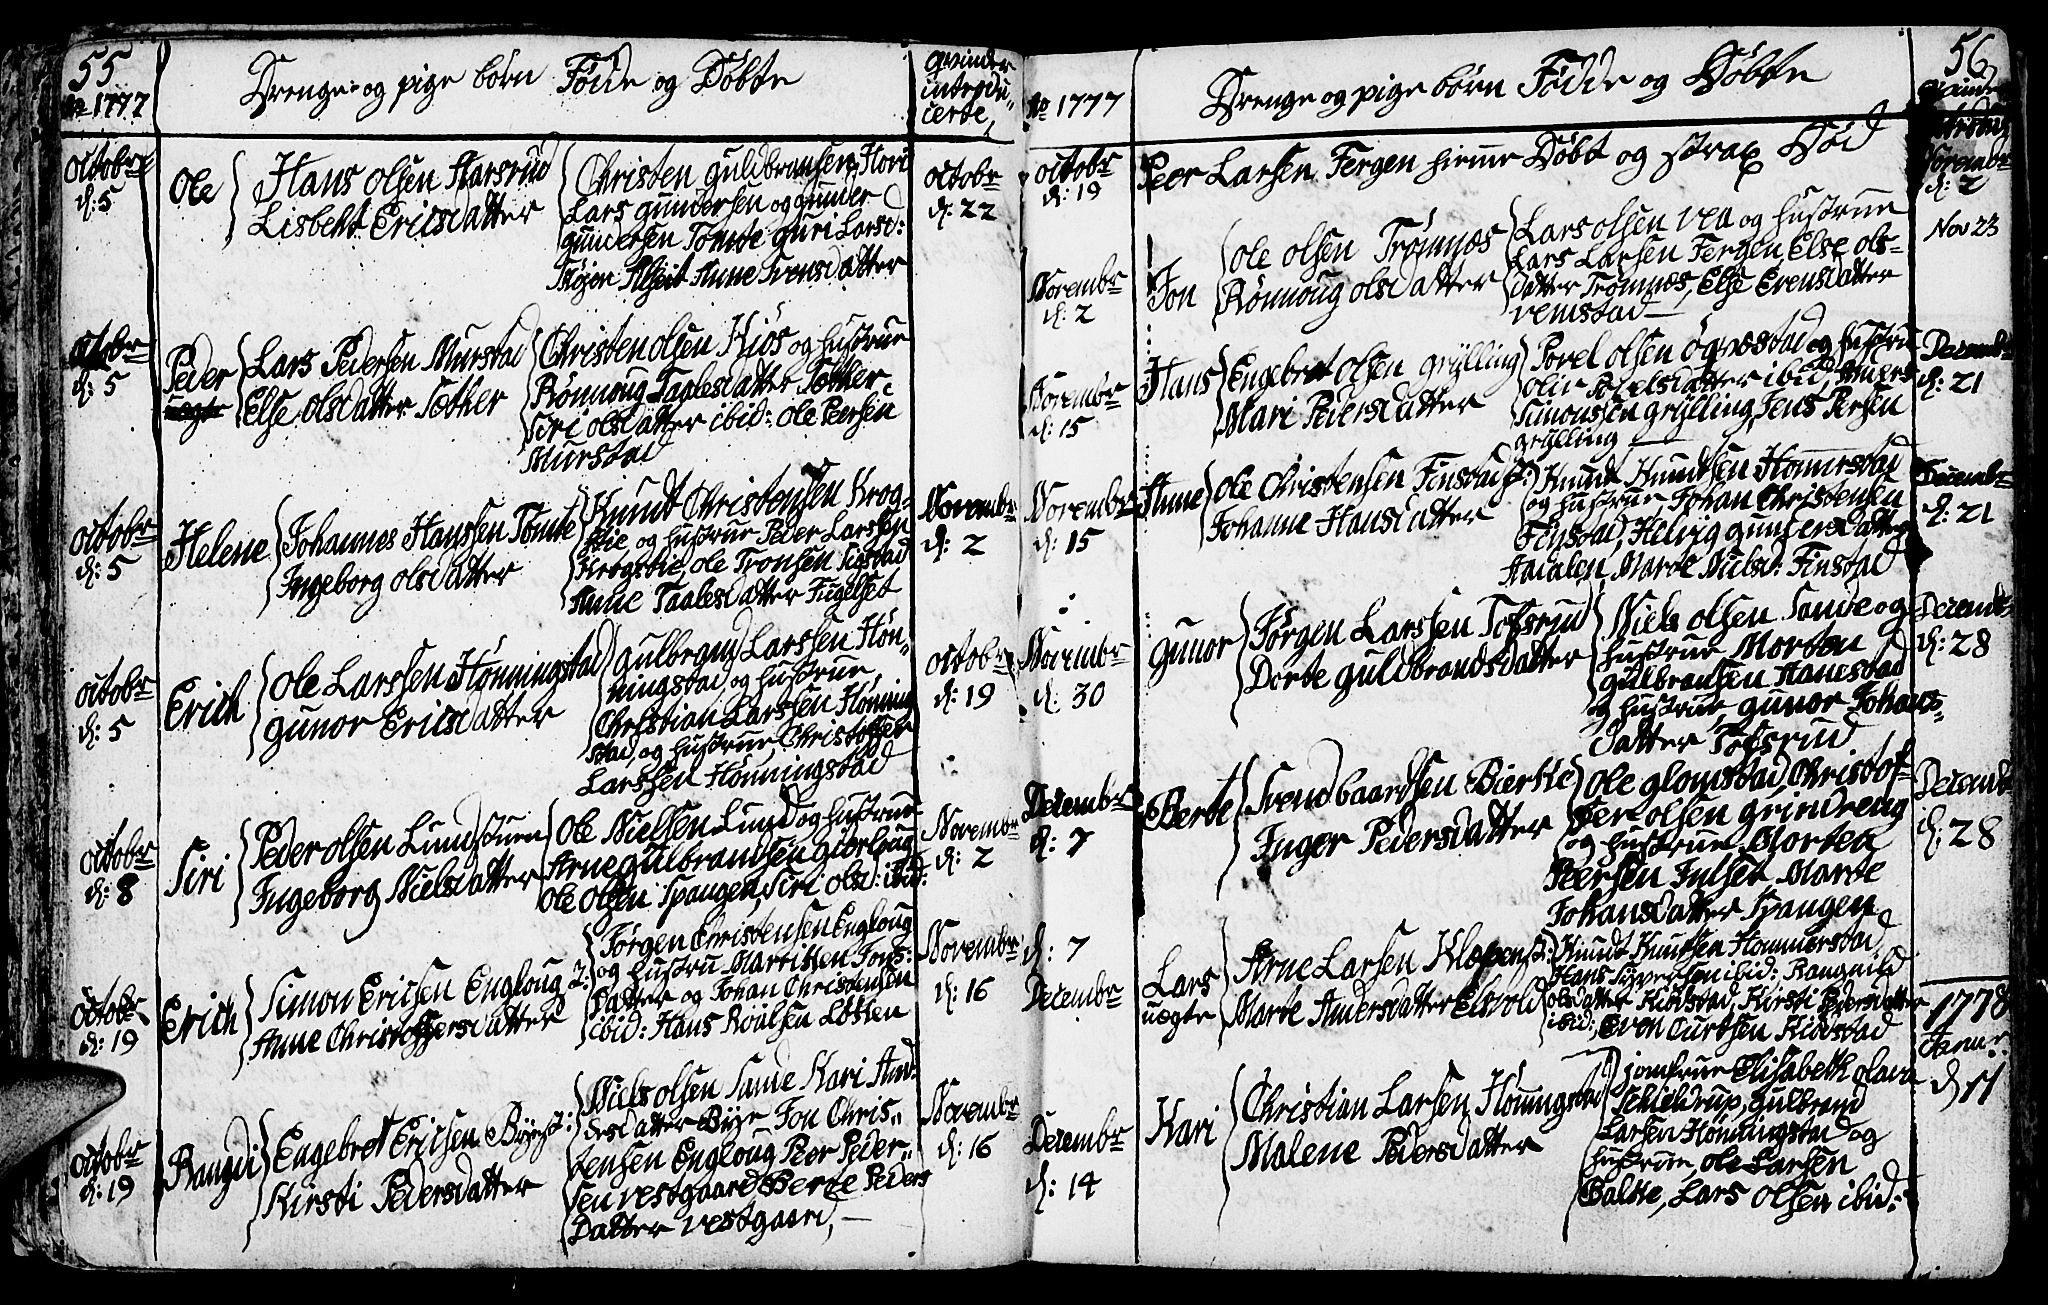 55
No 1777
Drenge og pige børn Fødde og Døbte
qvinder
introdu-
certe
octobr
d: 5
Ole
Hans olsen Harsrud
Lisbeht Ericsdatter
Christen guldbransen Hovi
Lars gundersen og gunder
gundersen Tomte guri Larsd:
Anne Svensdatter
octobr
d: 22
octobr
d: 5
Peder
uægte
Lars Pedersen Murstad
Else olsdatter Sæther
Christen olsen Kios og hustrue
Rønnoug Taalesdatter Sæther
Siri olsdatter ibid: ole Peersen
Murstad
octobr
d: 5
Helene
Johannes Hanssen Tomte
Ingeborg olsdatter
Knudt Christensen Krog-
stie og hustrue Peder Larssen
Krogstie, ole Tronsen
Anne Taalesdatter Fugelset
Novembr
d: 2
octobr
d: 5
Erich
ole Larssen Hønningstad
gunor Ericsdatter
gulbrand Larssen Høn-
ningstad og hustrue
Christian Larssen Hønning
stad, og hustrue, Christoffer
Larssen Hønningstad
octobr
d: 19
octobr
d: 8
Siri
Peder olsen Lundstuen
Ingeborg Nielsdatter
Ole Nielsen Lund og hustrue
Arne gulbrandsen giørloug
Ole Olsen Spangen, Siri olsd: ibid:
Novembr
d: 2
octobr
d: 19
Erich
Simon Ericsen Engloug
Anne Christoffersdatter
Jørgen Christensen Engloug
og hustru Marritten Jons:
datter og Johan Christensen
ibid: Hans Roalsen Løkken
Novembr
d: 16
octobr
d: 19
Rangdi
Engebret Ericsen Byest:
Kirsti Pedersdatter
Niels olsen Sande Kari And-
dersdatter Bÿe Jon Chris-
tensen Engloug Peer Peder-
sen vestgaard Berte Peders
Datter vestgaard, —
Novembr
d: 16
56
No 1777
Drenge og pige børn Fødde og Døbte
octobr
d: 19
Peer Larsen Fergen hieme Døbt og strax Død
Novembr
d: 2
Novembr
d: 2
Jon
ole olsen Trømnæs
Rønnoug olsdatter
Lars olsen vea og hustrue
Lars Larsen Fergen, Else ols-
datter Trømnæs, Else Evensdatter
vemstad —
Nov 23
Novembr
d: 15
Hans
Engebret olsen grÿlling
Mari Pedersdatter
Povel olsen øgnestad og hustru
ibid, Anders
Simonssen grÿlling, Jens Persen
grÿlling
Decembr
d: 21
Novembr
d: 15
Anne
Ole Christensen Finstad
Johanne Hansdatter
Knudt Knudtsen Hommerstad
og hustrue, Johan Christensen
Finstad, Helvig gundersdatter
Marte Nilsd: Finstad
Decembr
d: 21
Novembr
d: 30
gunor
Jørgen Larssen Tofsrud
Dorte guldbrandsdatter
Niels olsen Sande og
hustrue Morten
gulbransen Hanestad
og hustrue, gunor Johans-
datter Tofsrud
Decembr
d: 28
Decembr
d: 7
Berte
Svend baardsen Biercke
Inger Pedersdatter
ole glomstad, Christof-
fer olsen grindreng
og hustrue Morten
Peersen Julset Marte
Johansdatter Spangen
Decembr
d: 28
d: 7
Decembr
Lars
uægte
Arne Larsen Klopenst:
Marte Andersdatter Elsvold
Knudt Knutsen Hommerstad
Hans Syversen ibid: Rangnild
olsdatter Kiølstad, Kirsti Pedersdatter
ibid: Even Curtsen Kiølstad
Decembr
d: 14
Kari
Christian Larsen Hønningstad
Malene Pedersdatter
jomfrue Elisabeth olava
Schieldrup, gulbrand
Larsen Hønningstad og
hustrue, ole Larsen
Balke, Lars Olsen ibid:
1778
Janu:
d 11